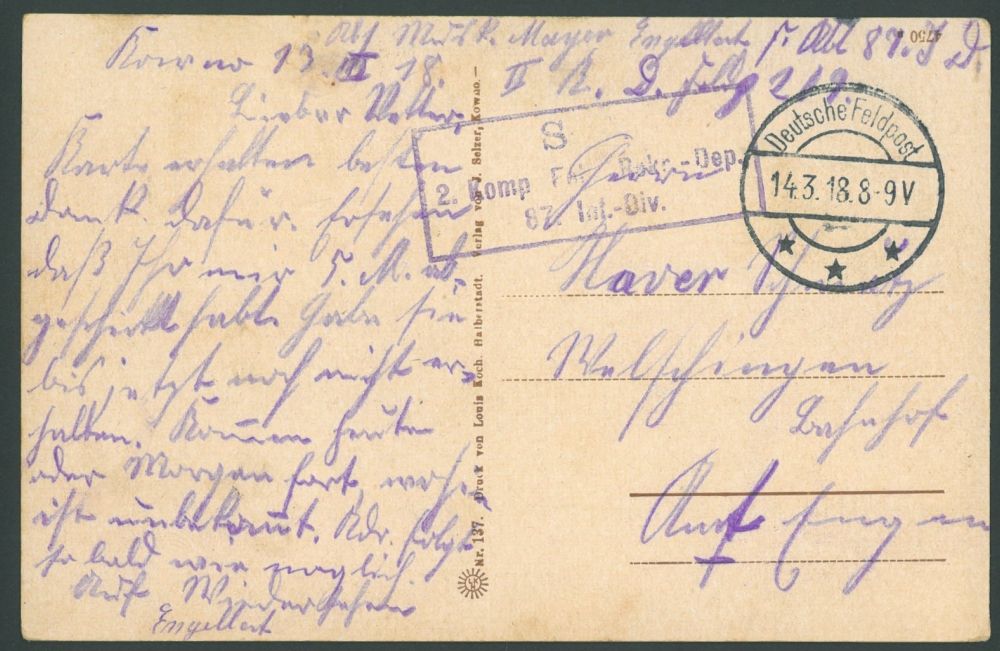 Abs Musk. Mayer Engelbert 5. Abl 87. I D.
II K. D. Feldp 269.
Kowno 13. III 18.
Lieber Vetter,
Karte erhalten besten
Dank dafür. Ersehen
daß Ihr mir 5. M. ab-
geschickt habt. Habe sie
bis jetzt noch nicht er-
halten. Kommen heute
oder Morgen fort, wohin
ist unbekannt. Adr. folgt
so bald wie möglich.
Auf Wiedersehen
Engelbert
Nr. 137. Druck von Louis Koch, Halberstadt. Verlag von J. Selzer, Kowno.
S
2. Komp Rekr.-Dep.
87. Inf.-Div.
Deutsche Feldpost
14.3.18.8-9V
4750
Herrn
Xaver
Welschingen
Bahnhof
Amt Engen